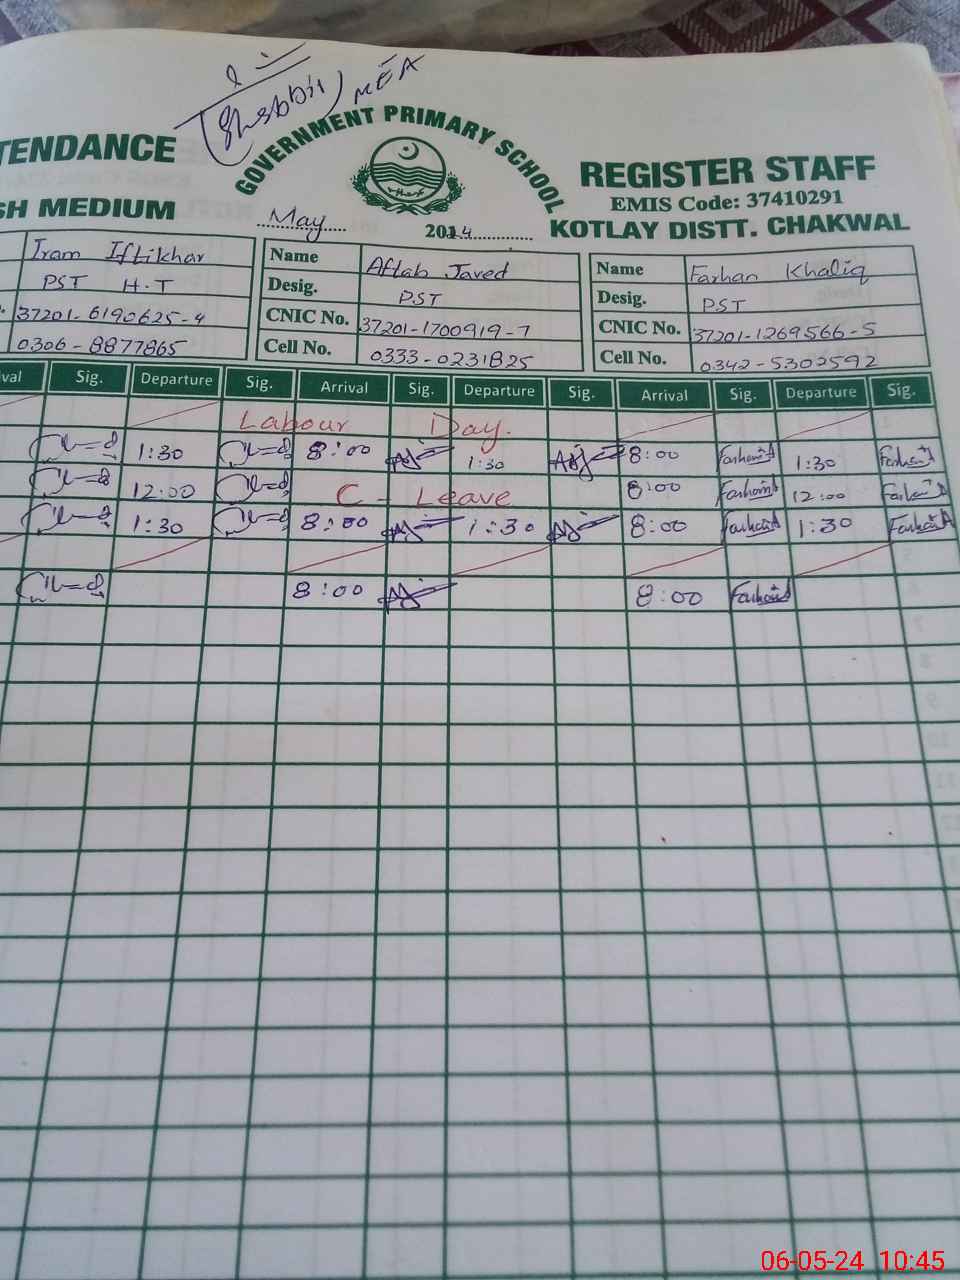 Shabbir MEA
GOVERNMENT PRIMARY SCHOOL
TENDANCE
REGISTER STAFF
EMIS Code: 37410291
SH MEDIUM
May 2024
KOTLAY DISTT. CHAKWAL
Iram Iftikhar Name Aftab Javed Name Farhan Khaliq
PST H.T Desig. PST Desig. PST
37201-6190625-4 CNIC No. 37201-1700919-7 CNIC No. 37201-1269566-5
0306-8877865 Cell No. 0333-0231825 Cell No. 0342-5302592
val Sig. Departure Sig. Arrival Sig. Departure Sig. Arrival Sig. Departure Sig.
Labour Day.
1:30 8:00 1:30 8:00 Farhan 1:30 Farhan
12:00 C - Leave 8:00 Farhan 12:00 Farhan
1:30 8:00 1:30 8:00 Farhan 1:30 Farhan
8:00 8:00 Farhan
06-05-24 10:45